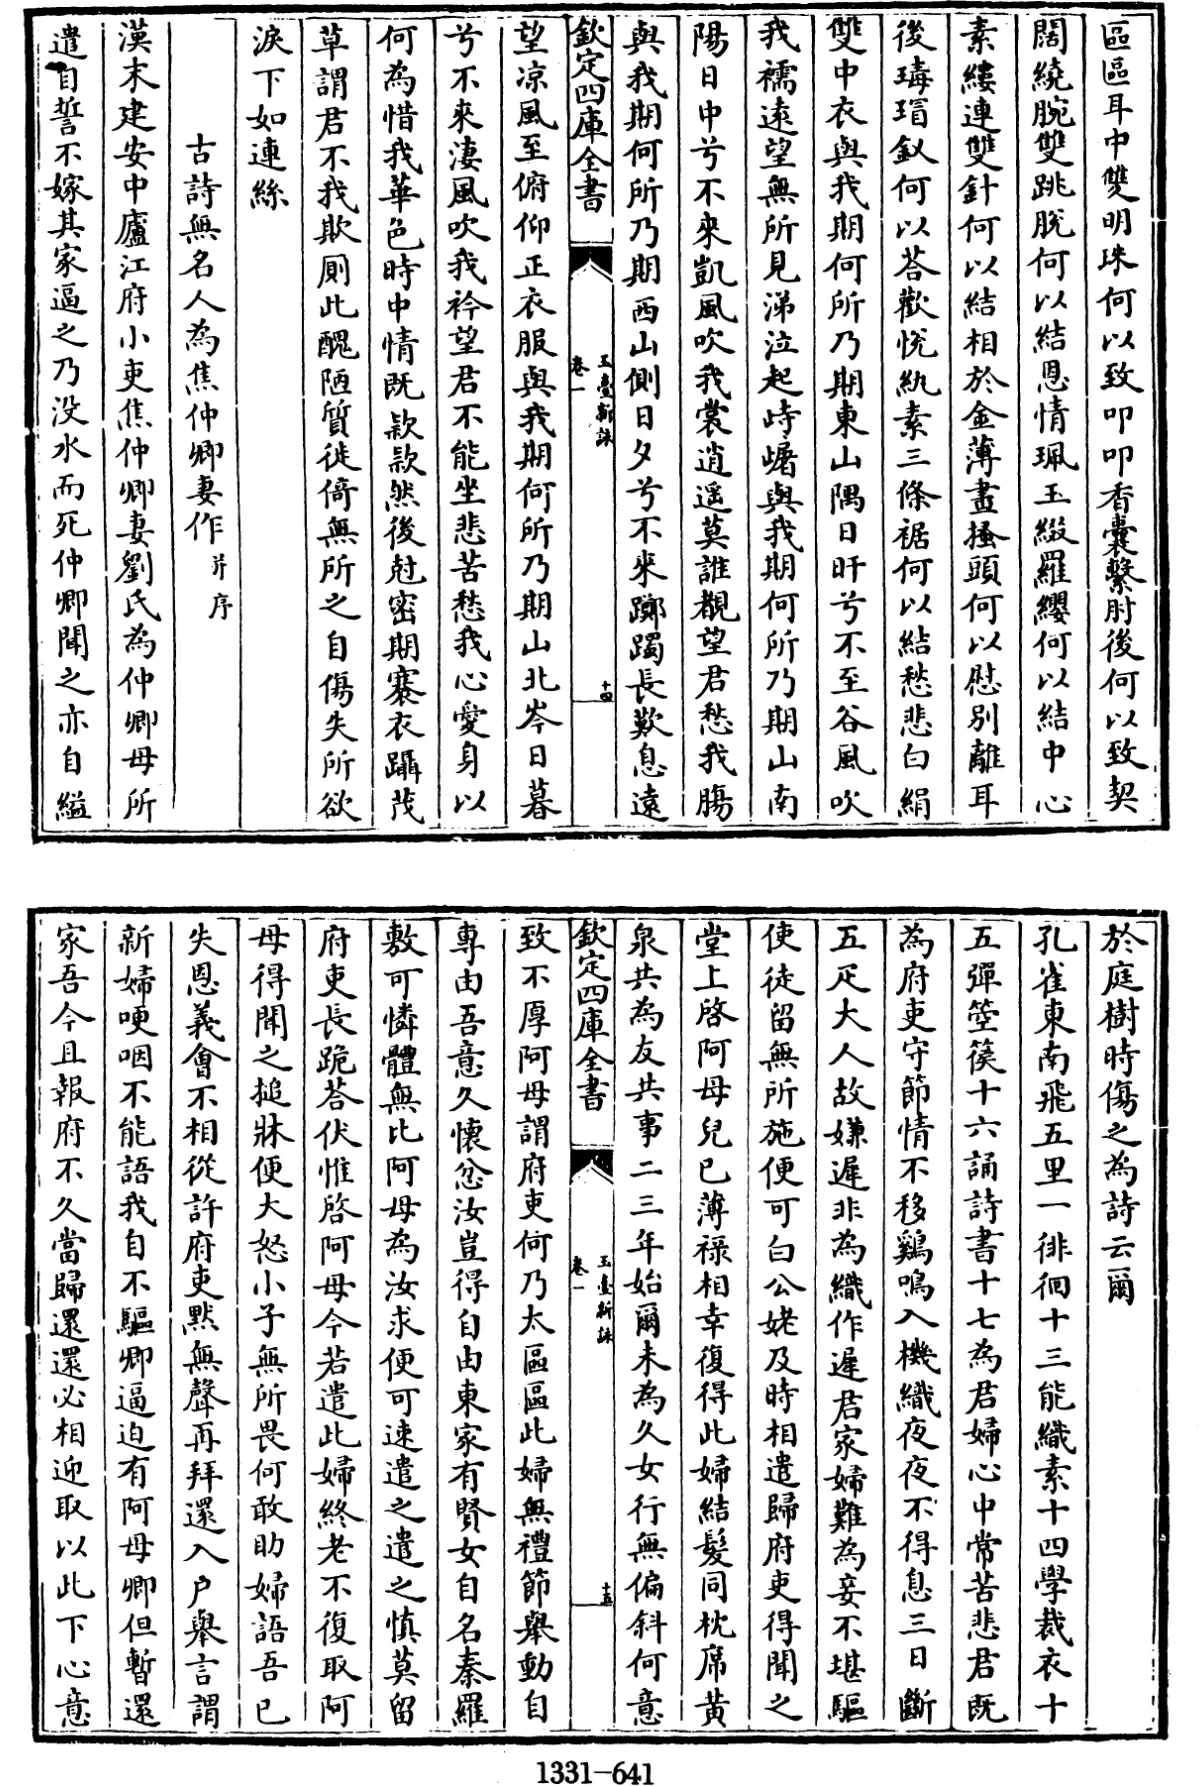 區區耳中雙明珠何以致叩叩香囊繫肘後何以致契
闊繞腕雙跳脫何以結恩情珮玉綴羅纓何以結中心
素縷連雙針何以結相於金薄畫搔頭何以慰別離耳
後瑇瑁釵何以荅歡悅紈素三條裾何以結愁悲白絹
雙中衣與我期何所乃期東山隅日旰兮不至谷風吹
我襦遠望無所見涕泣起峙𡺾與我期何所乃期山南
陽日中兮不來凱風吹我裳逍遥莫誰覩望君愁我腸
與我期何所乃期西山側日夕兮不來躑躅長歎息遠
欽定四庫全書
玉臺新詠
卷一
十四
望凉風至俯仰正衣服與我期何所乃期山北岑日暮
兮不來淒風吹我衿望君不能坐悲苦愁我心愛身以
何為惜我華色時中情既欵欵然後尅密期褰衣躡茂
草謂君不我欺厠此醜陋質徙倚無所之自傷失所欲
淚下如連絲
古詩無名人為焦仲卿妻作并序
漢末建安中廬江府小吏焦仲卿妻劉氏為仲卿母所
遣自誓不嫁其家逼之乃没水而死仲卿聞之亦自縊
於庭樹時傷之為詩云爾
孔雀東南飛五里一徘徊十三能織素十四學裁衣十
五彈箜篌十六誦詩書十七為君婦心中常苦悲君既
為府吏守節情不移鷄鳴入機織夜夜不得息三日斷
五疋大人故嫌遲非為織作遲君家婦難為妾不堪驅
使徒留無所施便可白公姥及時相遣歸府吏得聞之
堂上啓阿母兒已薄禄相幸復得此婦結髮同枕席黄
泉共為友共事二三年始爾未為久女行無偏斜何意
欽定四庫全書
玉臺新詠
卷一
十五
致不厚阿母謂府吏何乃太區區此婦無禮節舉動自
專由吾意久懷忿汝豈得自由東家有賢女自名秦羅
敷可憐體無比阿母為汝求便可速遣之遣之慎莫留
府吏長跪荅伏惟啓阿母今若遣此婦終老不復取阿
母得聞之槌牀便大怒小子無所畏何敢助婦語吾已
失恩義會不相從許府吏黙無聲再拜還入户舉言謂
新婦哽咽不能語我自不驅卿逼迫有阿母卿但暫還
家吾今且報府不久當歸還還必相迎取以此下心意
1331-641